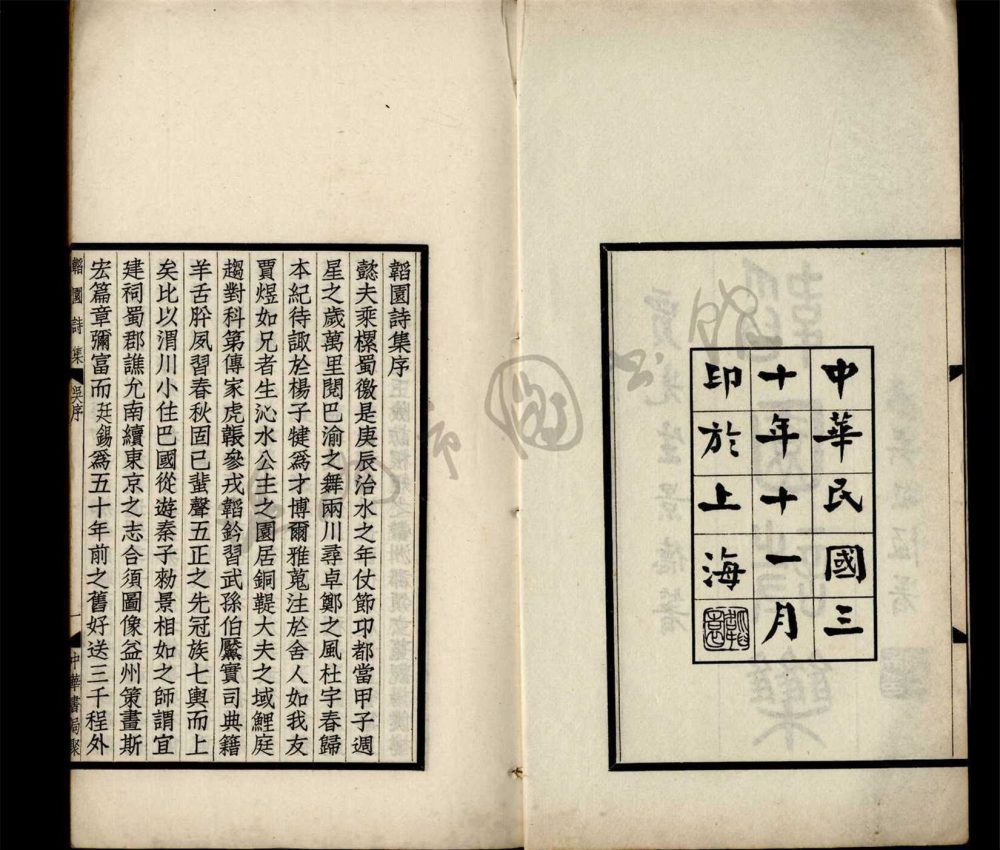 中華民國三
十年十一月
印於上海
韜園詩集序
懿夫乘樏蜀徼是庚辰治水之年仗節邛都當甲子週
星之歲萬里閱巴渝之舞兩川尋卓鄭之風杜宇春歸
本紀待諏於楊子犍爲才博爾雅蒐注於舍人如我友
賈煜如兄者生沁水公主之園居銅鞮大夫之域鯉庭
趨對科第傳家虎韔參戎韜鈐習武孫伯黶實司典籍
羊舌肸夙習春秋固已蜚聲五正之先冠族七輿而上
矣比以渭川小住巴國從遊秦子勑景相如之師謂宜
建祠蜀郡譙允南續東京之志合須圖像益州策畫斯
宏篇章彌富而廷錫爲五十年前之舊好送三千程外
韜園詩集
吳序
一
中華書局聚